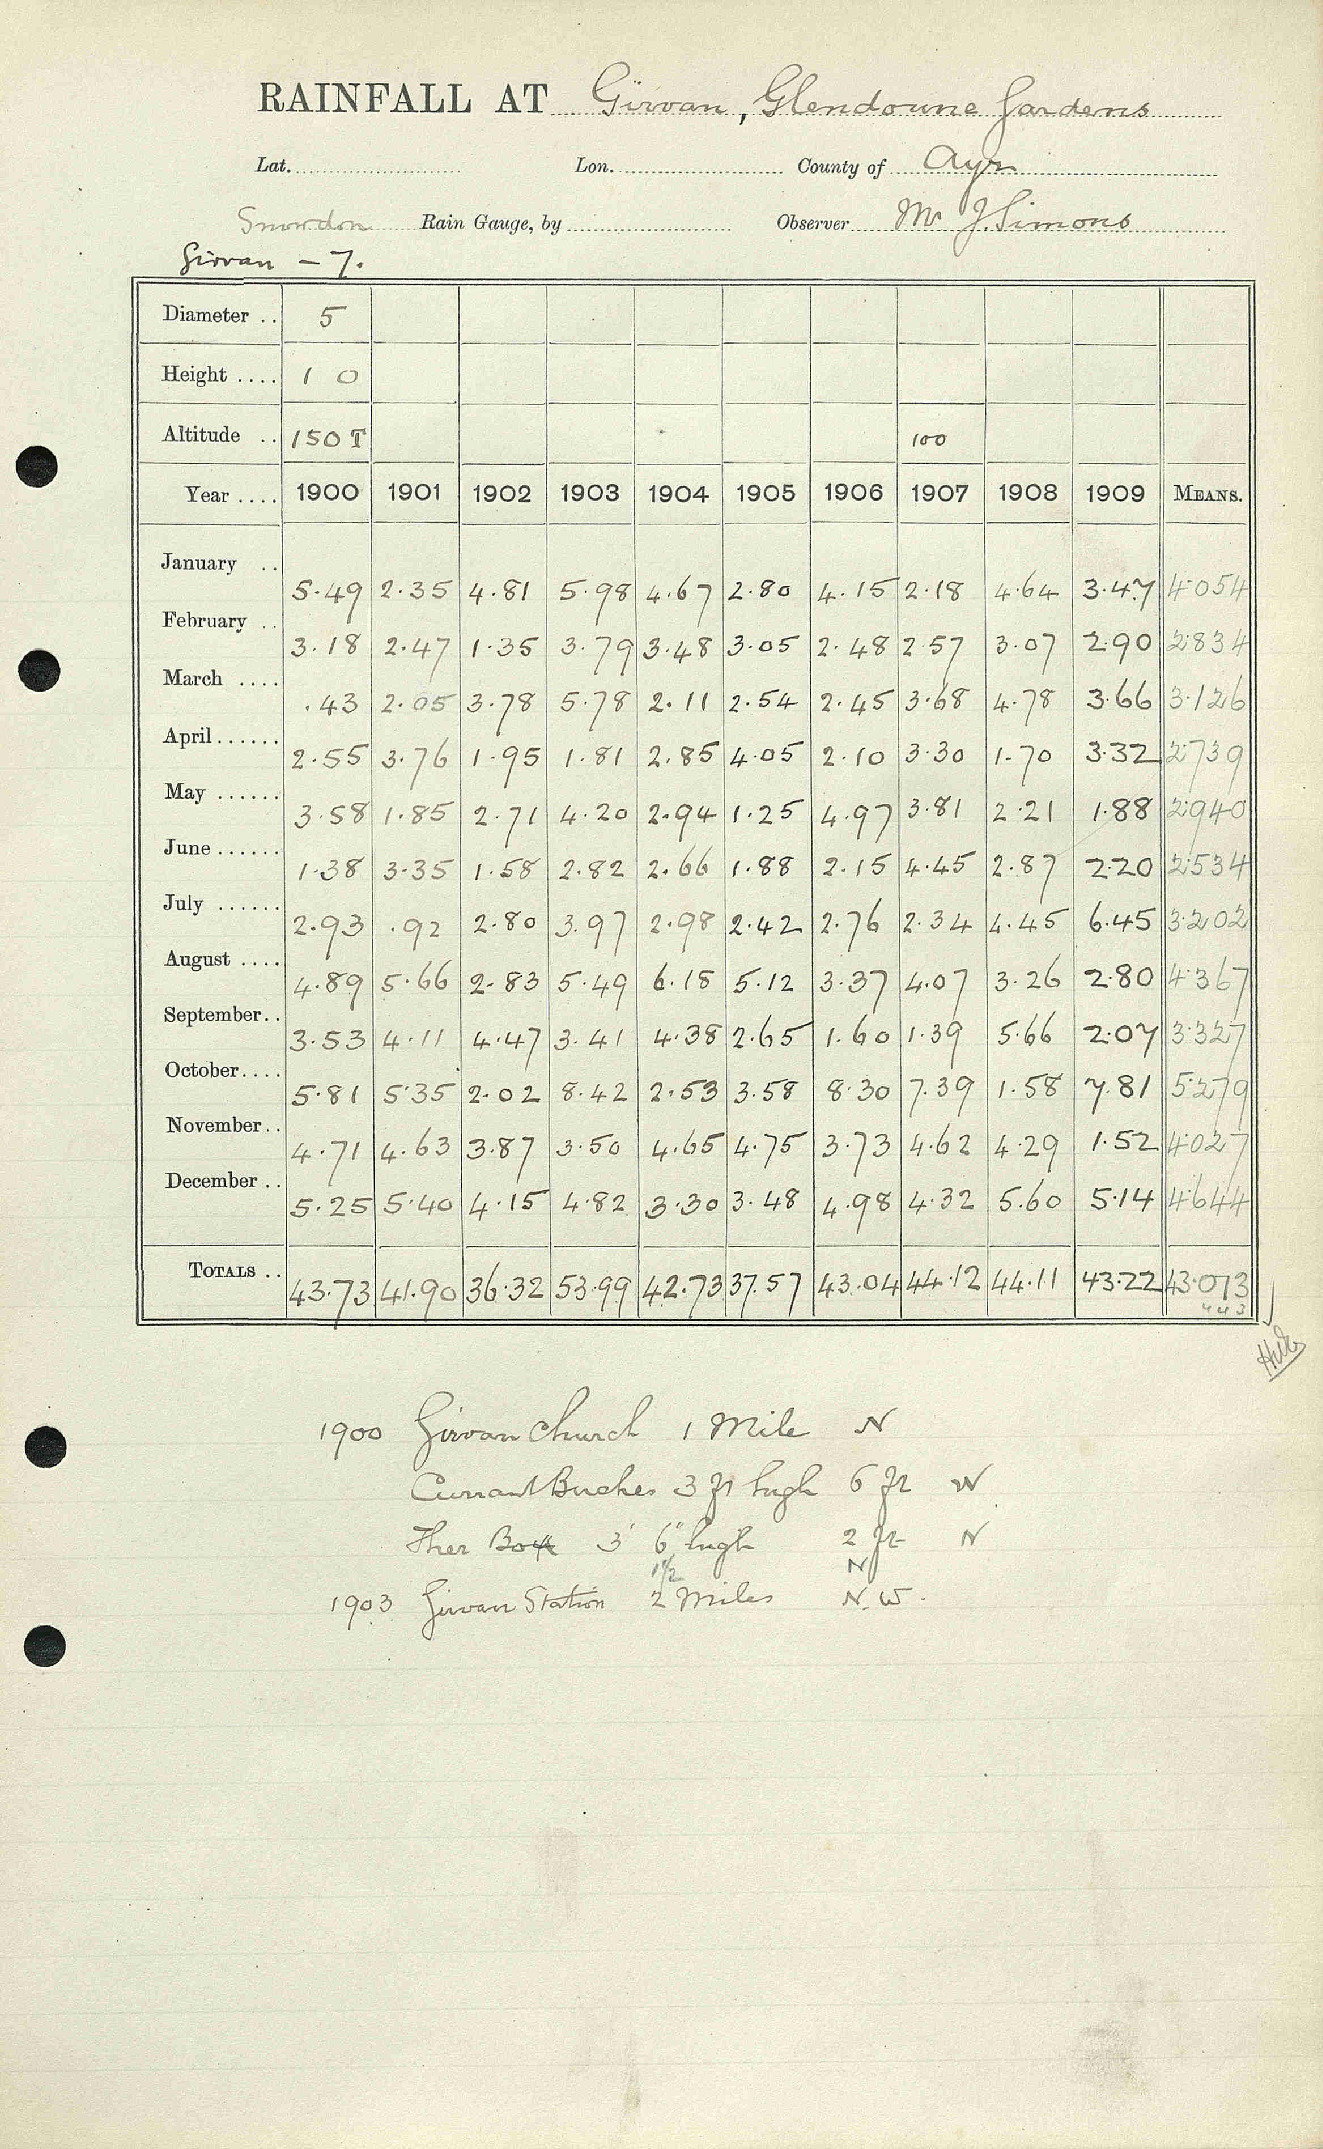 RAINFALL AT Girvan, Glendoune Gardens
Lat. Lon. County of Ayr
Snowdon Rain Gauge, by Observer Mr J. Simons
Girvan - 7.
Diameter .. 5
Height .... 1 0
Altitude .. 150 T 100
Year .... 1900 1901 1902 1903 1904 1905 1906 1907 1908 1909 MEANS.
January .. 5.49 2.35 4.81 5.98 4.67 2.80 4.15 2.18 4.64 3.47 4.054
February .. 3.18 2.47 1.35 3.79 3.48 3.05 2.48 2.57 3.07 2.90 2.834
March .... .43 2.05 3.78 5.78 2.11 2.54 2.45 3.68 4.78 3.66 3.126
April ...... 2.55 3.76 1.95 1.81 2.85 4.05 2.10 3.30 1.70 3.32 2.739
May ...... 3.58 1.85 2.71 4.20 2.94 1.25 4.97 3.81 2.21 1.88 2.940
June ...... 1.38 3.35 1.58 2.82 2.66 1.88 2.15 4.45 2.87 2.20 2.534
July ...... 2.93 .92 2.80 3.97 2.98 2.42 2.76 2.34 4.45 6.45 3.202
August .... 4.89 5.66 2.83 5.49 6.18 5.12 3.37 4.07 3.26 2.80 4.367
September .. 3.53 4.11 4.47 3.41 4.38 2.65 1.60 1.39 5.66 2.07 3.327
October .... 5.81 5.35 2.02 8.42 2.53 3.58 8.30 7.39 1.58 7.81 5.279
November .. 4.71 4.63 3.87 3.50 4.65 4.75 3.73 4.62 4.29 1.52 4.027
December .. 5.25 5.40 4.15 4.82 3.30 3.48 4.98 4.32 5.60 5.14 4.644
TOTALS .. 43.73 41.90 36.32 53.99 42.73 37.57 43.04 44.12 44.11 43.22 43.073
443
1900 Girvan Church 1 Mile N
Currant Bushes 3 ft high 6 ft W
Ther Box 3' 6" high 2 ft N
1½ N
1903 Girvan Station 2 Miles N.W.